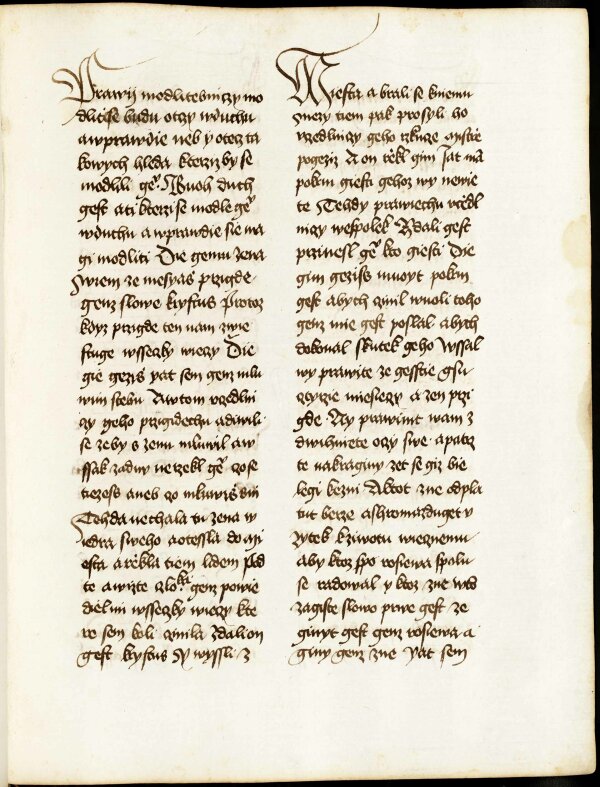 Prawij modlitebniczy mo
dlitise budu otczy wduchu
awprawdie neb y otecz ta
kowych hleda kterziz by se
modlili geº. Buoh duch
gest ati kterzi se modle geº
wduchu a wprawdie sie ma
gi modliti Die gemu zena
Swiem ze mesyas przigde
genz slowe krystus Protoz
kdyz przigde ten nam zwie
stuge wsseczky wieczy Die
gie gezis yat sem genz mlu
wim stebu Awtom vczedlni
czy geho przigidechu adiwili
se zeby s zenu mluwil aw
ssak zadny nerzekl geº czose
tiezess aneb czo mluwis sni
Tehda nechala tu zena w
iedra sweho aotessla do mi
esta arzekla tiem lidem Pod
te awizte czloka genz powie
diel mi wsseczky wieczy kte
re sem koli czinila Zdali on
gest krystus Y wyssli z
Miesta a brali se kniemu
Mezy tiem pak prosyli ho
vczedlniczy geho rzkucze mistrze
pogez A on rzekl gim Jat ma
pokrm giesti gehoz wy newie
te Tehdy prawiechu vczedl
niczy wespolek Zdali gest
przinesl geº kto giesti Die
gim gezis muoyt pokrm
gest abych czinil wuoli toho
genz mie gest poslal abych
dokonal skutek geho Wssak
wy prawite ze gesstie gsu
cztyrzie miesiecze a zen przi
gde Ay prawimt wam z
dwihniete oczy swe apatrz
te nakraginy zet se giz bie
legi kezni Aktot zne odpla
tut berze ashromazduget v
zytek k ziwotu wiecznemu
aby ktoz spo rosiewa spolu
se radowal y ktoz zne wto
zagiste slowo prwe gest ze
ginyt gest genz rosiewa a
giny genz zne Yat sem